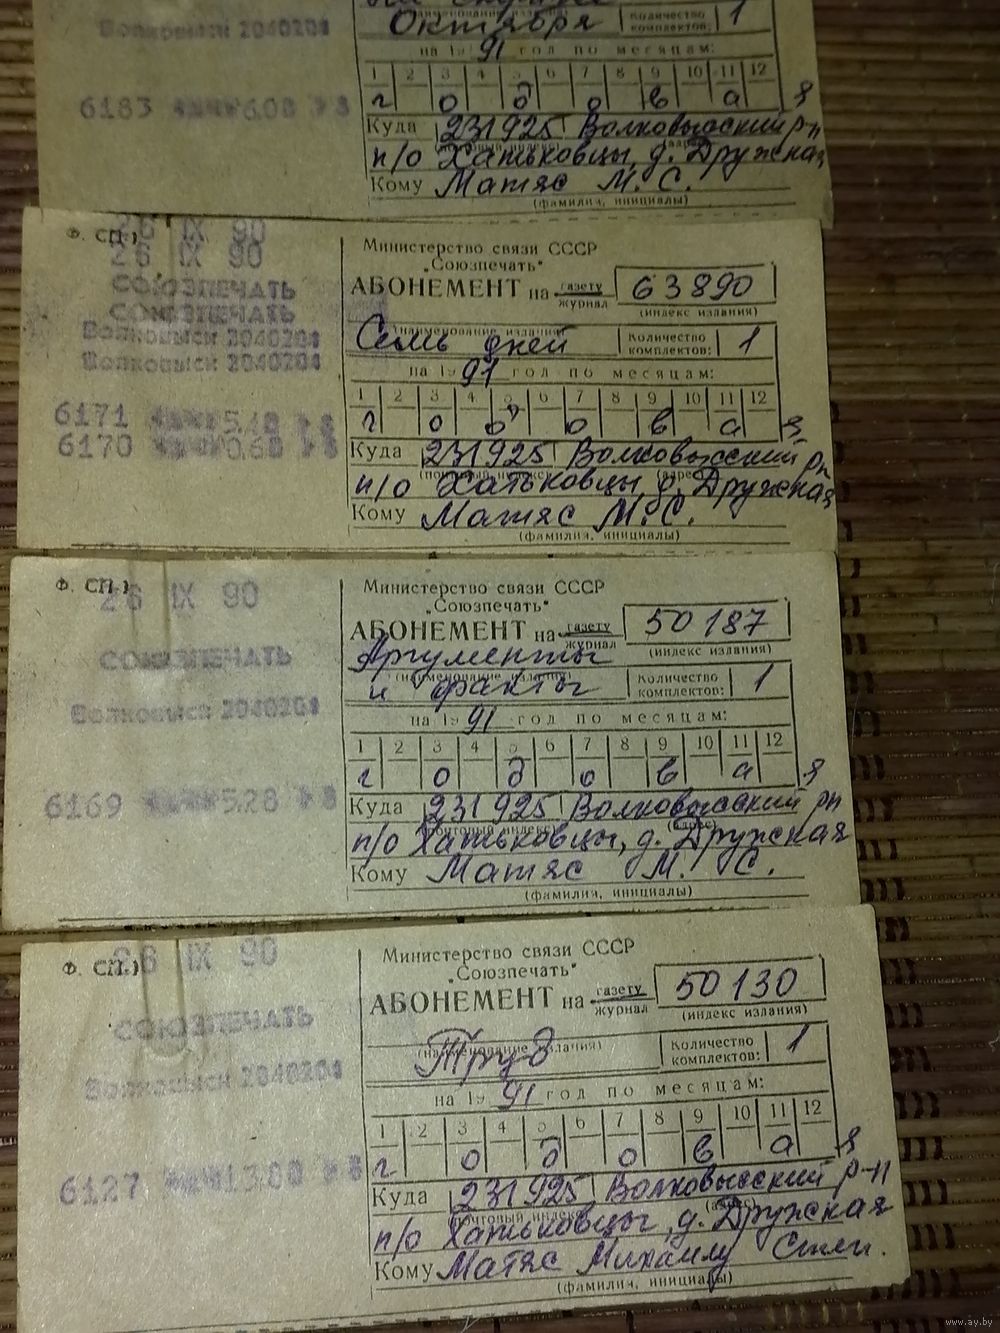 Октября
Количество
комплектов: 1
Волковыск 2040204
на 1991 год по месяцам:
1 2 3 4 5 6 7 8 9 10 11 12
г о д о в а я
6183 6.08
Куда 231925 Волковысский р-н
п/о Хатьковцы, д. Дружская
Кому Матяс М. С.
(фамилия, инициалы)
Ф. СП.
26 IX 90
26 IX 90
СОЮЗПЕЧАТЬ
СОЮЗПЕЧАТЬ
Волковыск 2040204
Волковыск 2040204
6171 5.48
6170 0.60
Министерство связи СССР
„Союзпечать"
АБОНЕМЕНТ на газету
журнал
63890
(индекс издания)
(наименование издания)
Семь дней
Количество
комплектов: 1
на 1991 год по месяцам:
1 2 3 4 5 6 7 8 9 10 11 12
г о д о в а я
Куда 231925 Волковысский рн
(почтовый индекс) (адрес)
п/о Хатьковцы, д. Дружская
Кому Матяс М. С.
(фамилия, инициалы)
Ф. СП.
26 IX 90
СОЮЗПЕЧАТЬ
Волковыск 2040204
6169 5.28
Министерство связи СССР
„Союзпечать"
АБОНЕМЕНТ на газету
журнал
50187
(индекс издания)
Аргументы
(наименование издания)
и факты
Количество
комплектов: 1
на 1991 год по месяцам:
1 2 3 4 5 6 7 8 9 10 11 12
г о д о в а я
Куда 231925 Волковысский рн
(почтовый индекс) (адрес)
п/о Хатьковцы, д. Дружская
Кому Матяс М. С.
(фамилия, инициалы)
Ф. СП.
26 IX 90
СОЮЗПЕЧАТЬ
Волковыск 2040204
6127 13.00
Министерство связи СССР
„Союзпечать"
АБОНЕМЕНТ на газету
журнал
50130
(индекс издания)
(наименование издания)
Труд
Количество
комплектов: 1
на 1991 год по месяцам:
1 2 3 4 5 6 7 8 9 10 11 12
г о д о в а я
Куда 231925 Волковысский р-н
(почтовый индекс) (адрес)
п/о Хатьковцы, д. Дружская
Кому Матяс Михаилу
(фамилия, инициалы)
www.ay.by